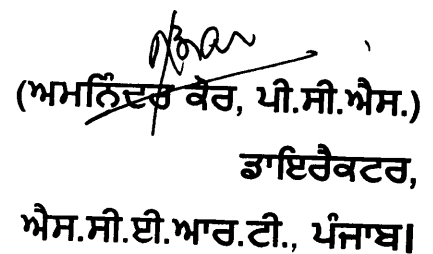 (ਅਮਨਿੰਦਰ ਕੌਰ, ਪੀ.ਸੀ.ਐਸ.)
ਡਾਇਰੈਕਟਰ,
ਐਸ.ਸੀ.ਈ.ਆਰ.ਟੀ., ਪੰਜਾਬ।